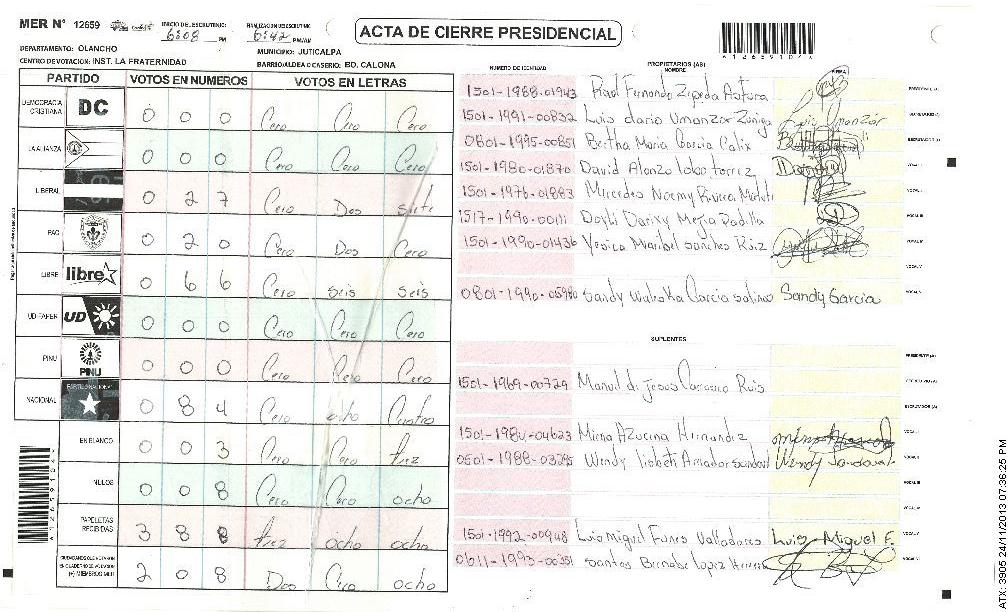 MER N° 12659
INICIO DEL ESCRUTINIO: 6:08 PM
FINALIZACION DE ESCRUTINIO: 6:42 PM/AM
ACTA DE CIERRE PRESIDENCIAL
A126591074
DEPARTAMENTO: OLANCHO
MUNICIPIO: JUTICALPA
CENTRO DE VOTACION: INST. LA FRATERNIDAD
BARRIO/ALDEA O CASERIO: BO. CALONA
PARTIDO VOTOS EN NUMEROS VOTOS EN LETRAS
DEMOCRACIA CRISTIANA DC 0 0 0 Cero Cero Cero
LA ALIANZA 0 0 0 Cero Cero Cero
LIBERAL 0 2 7 Cero Dos siete
PAC 0 2 0 Cero Dos Cero
LIBRE libre 0 6 6 Cero seis seis
UD-FAPER UD 0 0 0 Cero Cero Cero
PINU PINU 0 0 0 Cero Cero Cero
NACIONAL PARTIDO NACIONAL 0 8 4 Cero ocho Cuatro
EN BLANCO 0 0 3 Cero Cero trez
NULOS 0 0 8 Cero Cero ocho
PAPELETAS RECIBIDAS 3 8 8 trez ocho ocho
CIUDADANOS QUE VOTARON EN CUADERNO DE VOTACION (+) MIEMBROS MER 2 0 8 Dos Cero ocho
NUMERO DE IDENTIDAD PROPIETARIOS (AS) NOMBRE FIRMA
1501-1988-01943 Raul Fernando Zepeda PRESIDENTE (A)
1501-1991-00832 Luis dario Umanzor Zuniga SECRETARIO (A)
0801-1995-00851 Bertha Maria Garcia Calix ESCRUTADOR (A)
1501-1980-01870 David Alonzo lobo torrez VOCAL I
1501-1976-01883 Mercedes Noemy Rivera VOCAL II
1517-1990-00111 Darixy Mejia Padilla VOCAL III
1501-1990-01436 Yesica Maribel Sanches Ruiz VOCAL IV
VOCAL V
0801-1990-05980 Sandy Waleska Garcia salinas Sandy Garcia VOCAL VI
SUPLENTES
PRESIDENTE (A)
1501-1969-00729 Manuel de Jesus Ruis SECRETARIO (A)
ESCRUTADOR (A)
1501-1980-04623 Mirna Azucena Hernandez VOCAL I
0501-1988-03285 Wendy lisbeth Amador Sandoval Wendy Sandoval VOCAL II
VOCAL III
VOCAL IV
1501-1992-00948 Luis Miguel Funes Valladares Luis Miguel F. VOCAL V
0611-1993-00351 Santos Bernabe lopez Herrera VOCAL VI
ATX: 3905 24/11/2013 07:36:25 PM